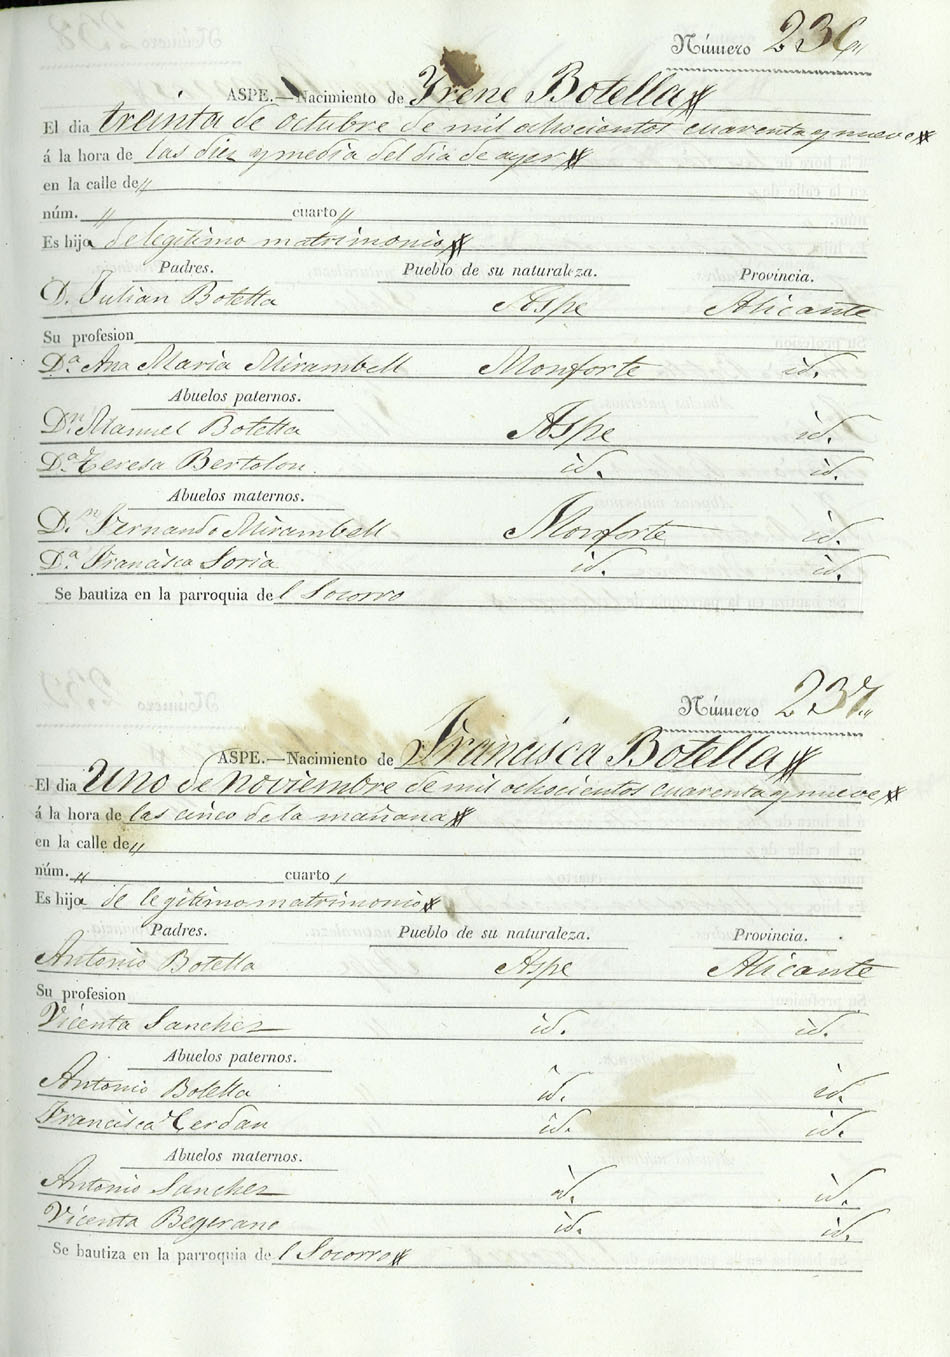 Número 236„
ASPE.—Nacimiento de Yrene Botella
El dia treinta de octubre de mil ochocientos cuarenta y nueve
á la hora de las diez y media del dia de ayer
en la calle de „
núm. „ cuarto „
Es hija de legitimo matrimonio
Padres. Pueblo de su naturaleza. Provincia.
D. Julian Botella Aspe Alicante
Su profesion
D.ª Ana Maria Mirambell Monforte id.
Abuelos paternos.
D.n Manuel Botella Aspe id.
D.ª Teresa Bertolon. id. id.
Abuelos maternos.
D.n Fernando Mirambell Monforte id.
D.ª Francisca Soria id. id.
Se bautiza en la parroquia del Socorro
Número 237„
ASPE.—Nacimiento de Francisca Botella
El dia uno de noviembre de mil ochocientos cuarenta y nueve
á la hora de las cinco de la mañana
en la calle de „
núm. „ cuarto „
Es hija de legitimo matrimonio
Padres. Pueblo de su naturaleza. Provincia.
Antonio Botella Aspe Alicante
Su profesion
Vicenta Sanchez id. id.
Abuelos paternos.
Antonio Botella id. id.
Francisca Cerdan id. id.
Abuelos maternos.
Antonio Sanchez id. id.
Vicenta Begerano id. id.
Se bautiza en la parroquia del Socorro